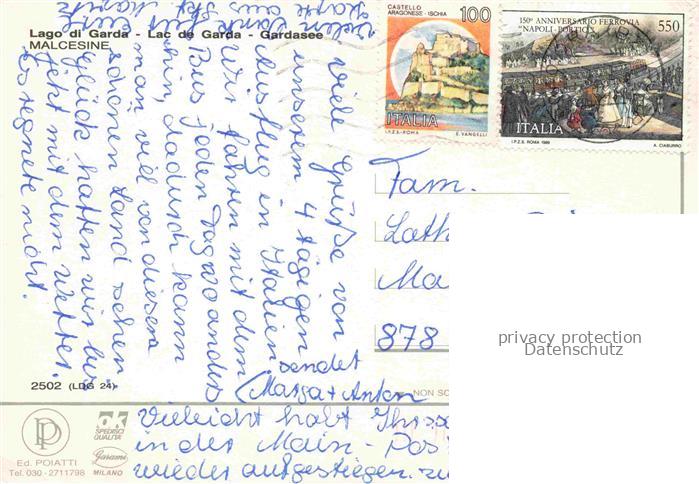 Lago di Garda - Lac de Garda - Gardasee
MALCESINE
CASTELLO
ARAGONESE - ISCHIA
100
ITALIA
I.P.Z.S.-ROMA E. VANGELLI
150° ANNIVERSARIO FERROVIA
"NAPOLI-PORTICI"
550
ITALIA
I.P.Z.S. ROMA 1989 A. CIABURRO
Viele Grüße von
unserem 4 tägigen
Ausflug in Italien
Wir fahren mit dem
Bus jeden Tag wo anders
hin, dadurch kann
man viel von diesem
schönen Land sehen
Glück hatten wir bis
jetzt mit dem Wetter.
es regnete nicht.
sendet
Marga + Anton
Vielen Dank für
Karte aus
Fam.
Lath
Ma
878
privacy protection
Datenschutz
2502 (LDG 24)
NON SC
Vieleicht habt Ihr
in der Main - Pos
wieder aufgestiegen. zu
Ed. POIATTI
Tel. 030 - 2711798
SPEDISCI
QUALITA'
Garami
MILANO